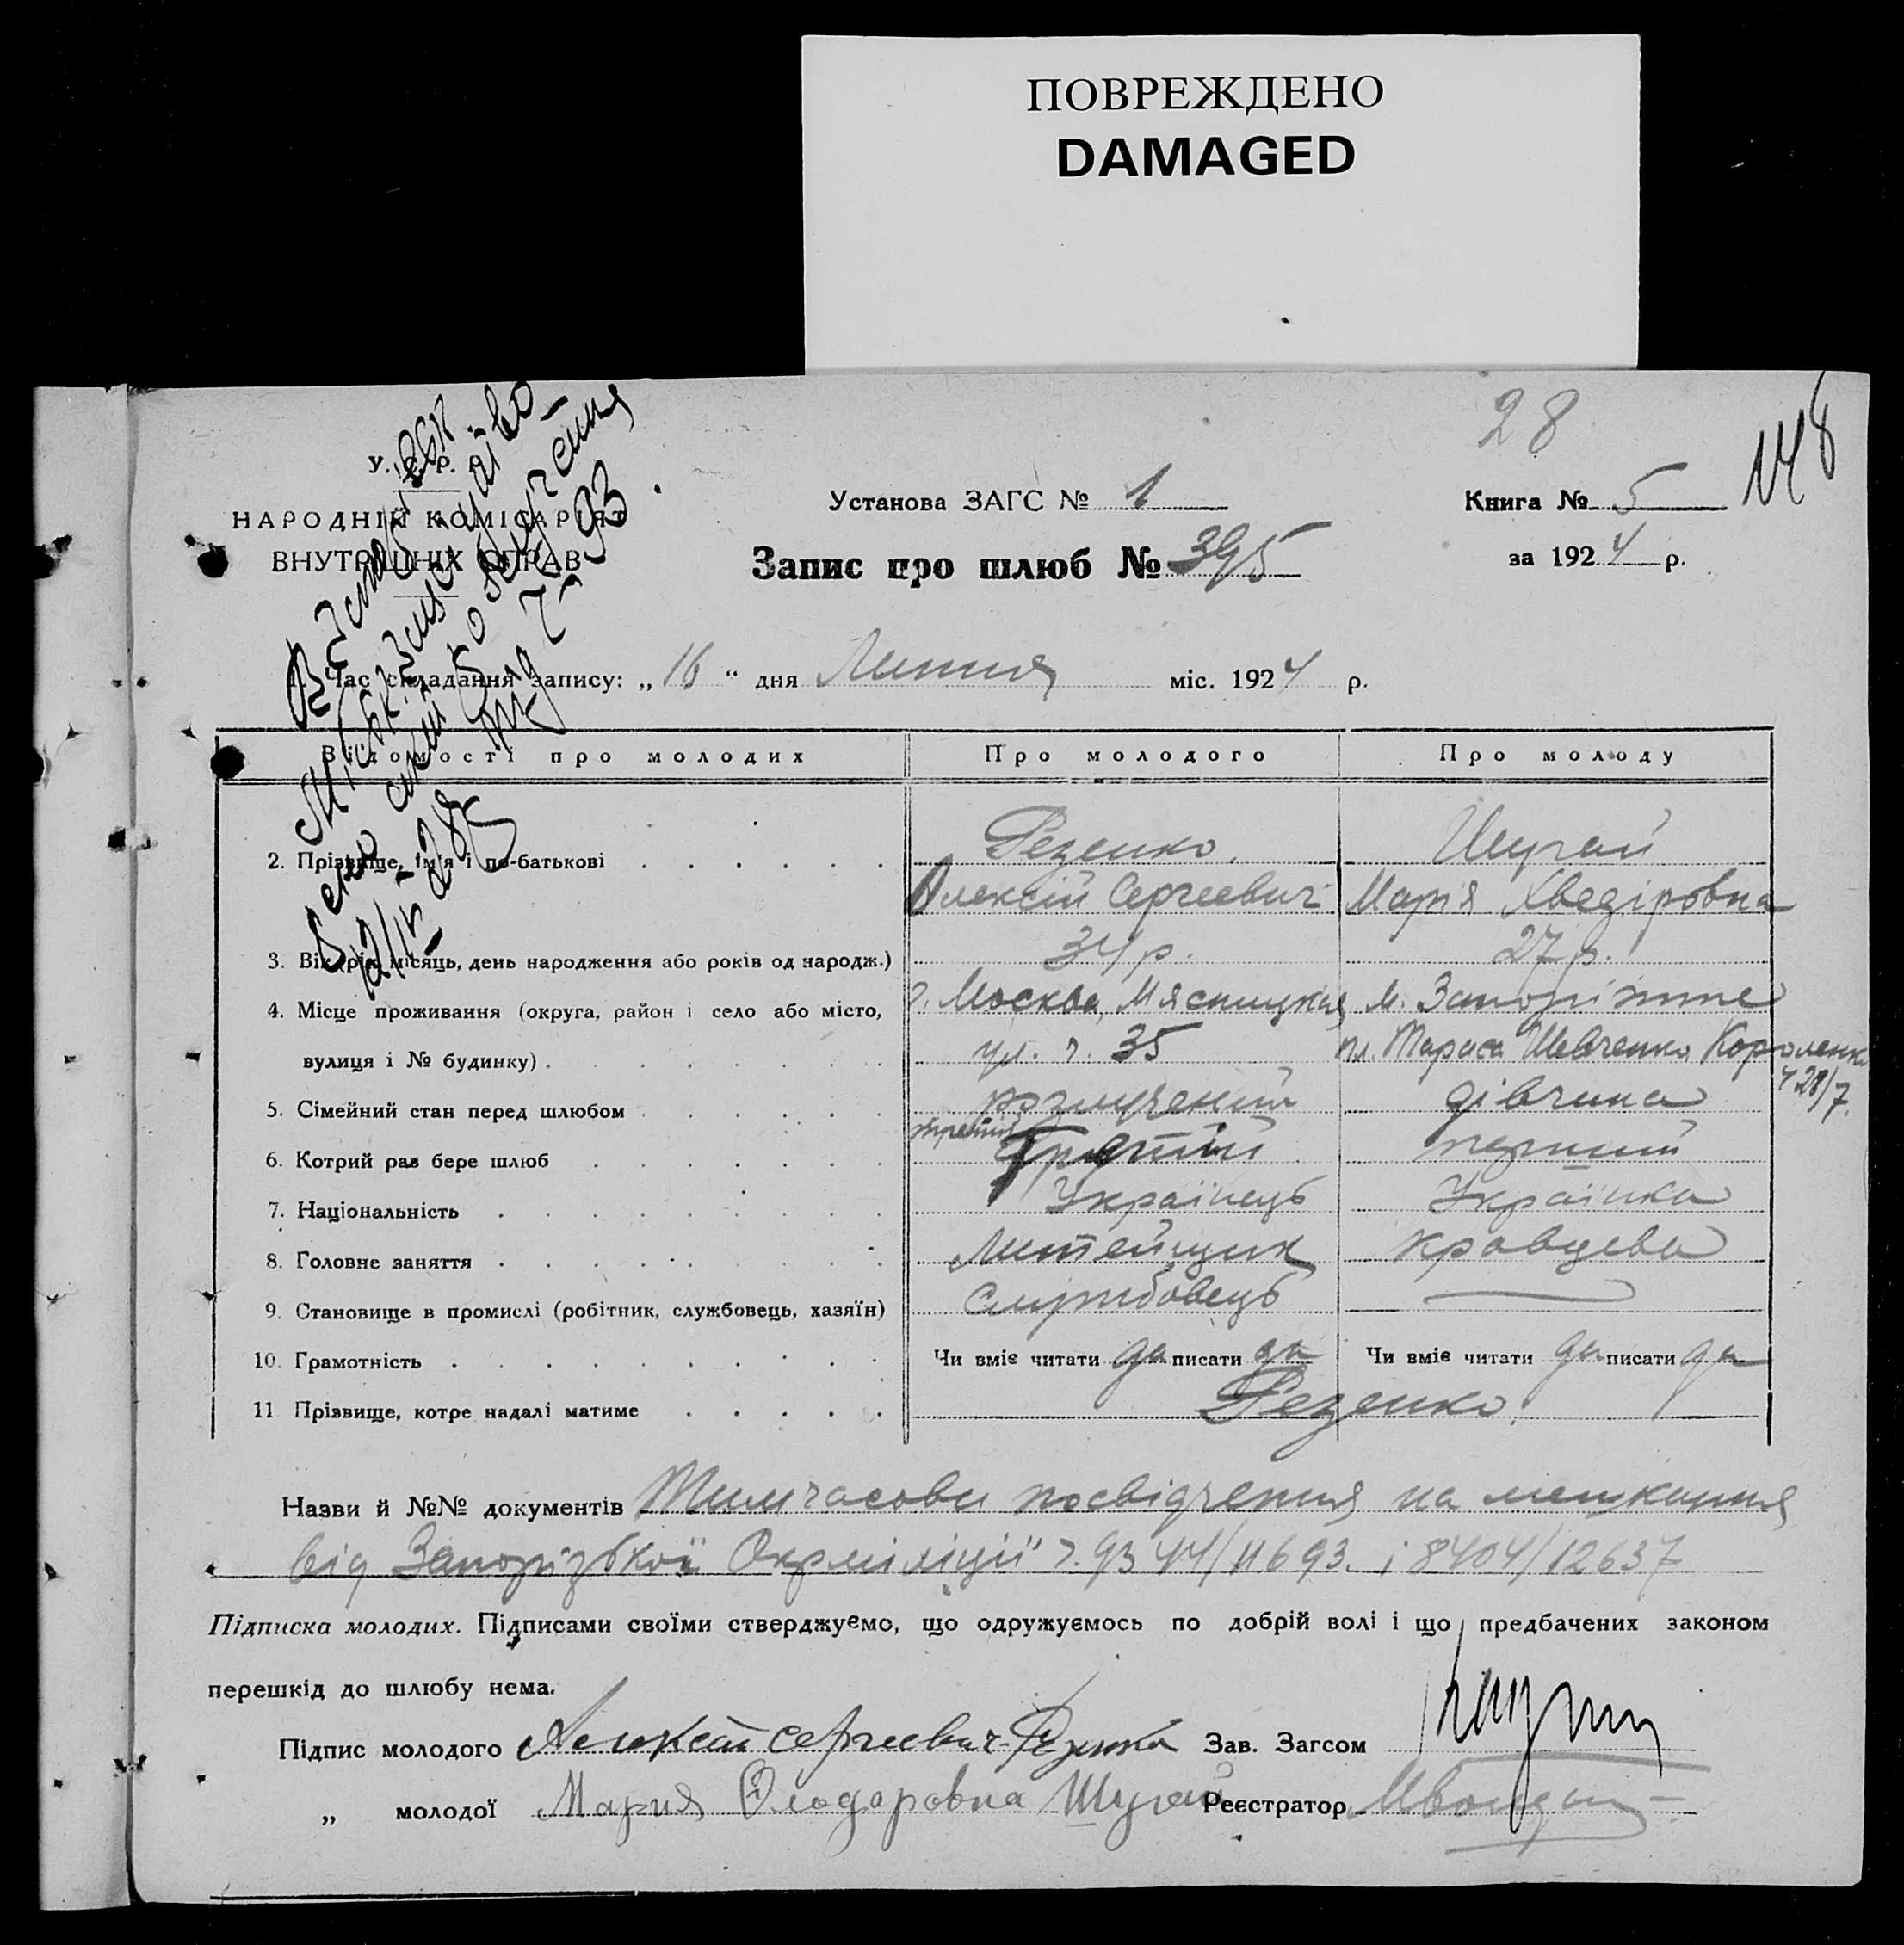 ПОВРЕЖДЕНО
DAMAGED
28
148
У. С. Р. Р.
НАРОДНІЙ КОМІСАРІЯТ
ВНУТРІШНІХ СПРАВ
Установа ЗАГС № 1
Книга № 5
Запис про шлюб № 395
за 1924 р.
1. Час складання запису: „16“ дня Липня міс. 1924 р.
Відомості про молодих Про молодого Про молоду
2. Прізвище, ім'я і по-батькові Резенко. Шугай
Алексій Сергеевич Марія Хведіровна
3. Вік (рік, місяць, день народження або років од народж.) 34 р. 27 р.
4. Місце проживання (округа, район і село або місто, г. Москва, Мясницкая м. Запоріжжє
вулиця і № будинку) ул. ч. 35 пл. Тараса Шевченка Короленка
ч 28/7.
5. Сімейний стан перед шлюбом розлучений дівчина
третій
6. Котрий раз бере шлюб перший
7. Національність Українець Українка
8. Головне заняття Литейщик кравцева
9. Становище в промислі (робітник, службовець, хазяїн) Службовець —
10. Грамотність Чи вміє читати да писати да Чи вміє читати да писати да
11 Прізвище, котре надалі матиме Резенко.
Назви й №№ документів Тимчасови посвідчення на мешкання
від Запорізької Окрміліції ч. 9344/11693. і 8404/12637
Підписка молодих. Підписами своїми стверджуємо, що одружуємось по добрій волі і що предбачених законом
перешкід до шлюбу нема.
Підпис молодого Алексей Сергеевич Резенко Зав. Загсом
„ молодої Мария Шугай Реєстратор